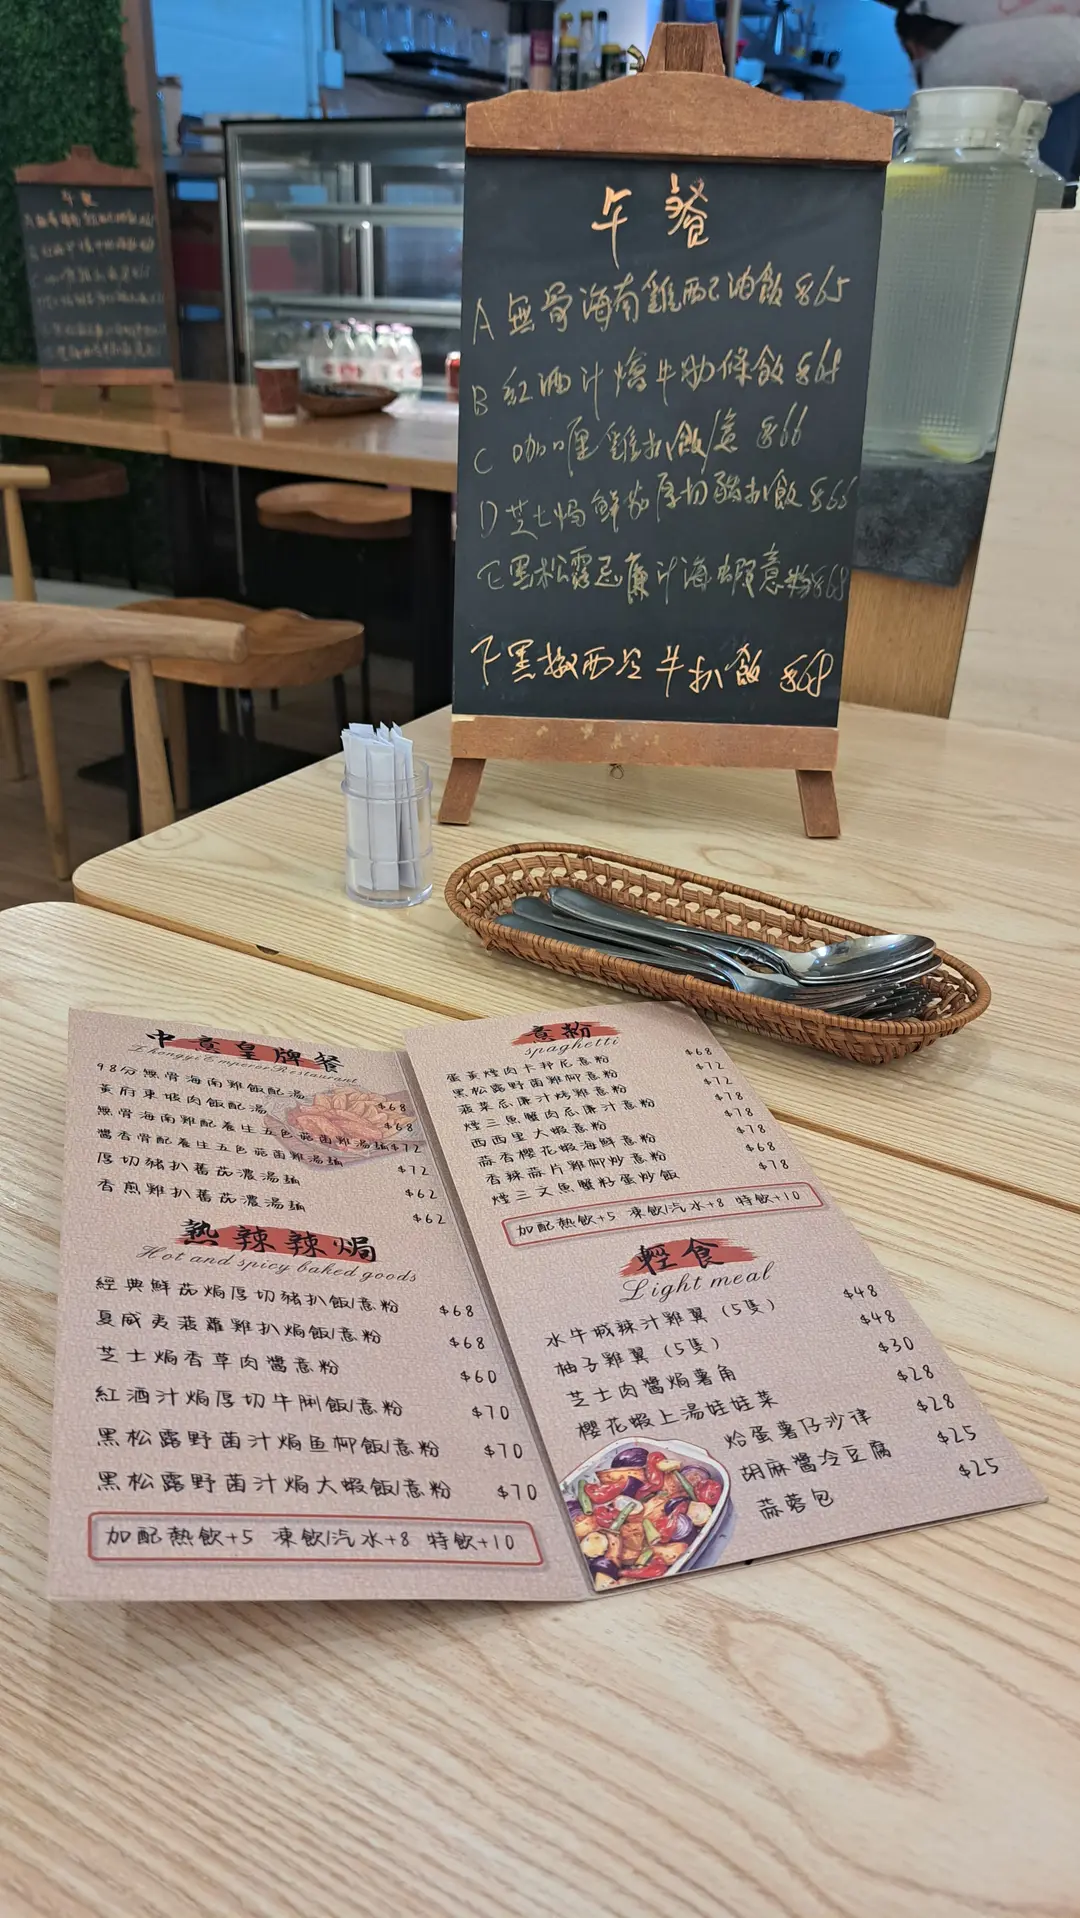 午餐
A 無骨海南雞配油飯 $65
B 紅酒汁燴牛肋條飯 $68
C 咖喱雞扒飯/意 $66
D 芝士焗鮮茄厚切豬扒飯 $66
E 黑松露忌廉汁海蝦意粉 $68
F 黑椒西冷牛扒飯 $68
午餐
中意皇牌餐
Zhongyi Emperor Restaurant
98分無骨海南雞飯配湯 $68
黃府東坡肉飯配湯 $68
無骨海南雞配養生五色菇菌雞湯麵 $72
醬香骨配養生五色菇菌雞湯麵 $72
厚切豬扒蕃茄濃湯麵 $62
香煎雞扒蕃茄濃湯麵 $62
熱辣辣焗
Hot and spicy baked goods
經典鮮茄焗厚切豬扒飯/意粉 $68
夏威夷菠蘿雞扒焗飯/意粉 $68
芝士焗香草肉醬意粉 $60
紅酒汁焗厚切牛脷飯/意粉 $70
黑松露野菌汁焗魚柳飯/意粉 $70
黑松露野菌汁焗大蝦飯/意粉 $70
加配熱飲+5 凍飲/汽水+8 特飲+10
意粉
spaghetti
蛋黃煙肉卡邦尼意粉 $68
黑松露野菌雞柳意粉 $72
菠菜忌廉汁烤雞意粉 $72
煙三魚蟹肉忌廉汁意粉 $78
西西里大蝦意粉 $78
蒜香櫻花蝦海鮮意粉 $78
香辣蒜片雞柳炒意粉 $68
煙三文魚蟹籽蛋炒飯 $78
加配熱飲+5 凍飲/汽水+8 特飲+10
輕食
Light meal
水牛城辣汁雞翼（5隻） $48
柚子雞翼（5隻） $48
芝士肉醬焗薯角 $30
櫻花蝦上湯娃娃菜 $28
烚蛋薯仔沙律 $28
胡麻醬冷豆腐 $25
蒜蓉包 $25